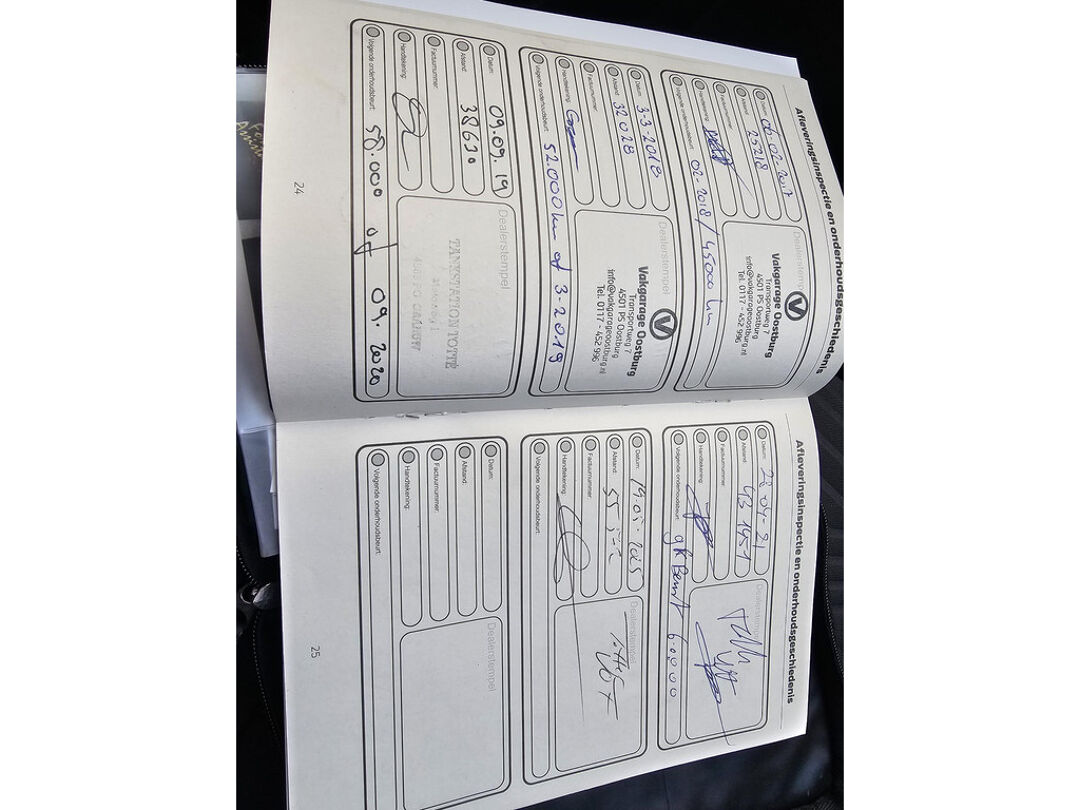 Afleveringsinspectie en onderhoudsgeschiedenis
Datum: 06-02-2017
Afstand: 25218
Factuurnummer:
Handtekening:
Volgende onderhoudsbeurt: 02-2018 / 45000 km
Dealerstempel
Vakgarage Oostburg
Transportweg 7
4501 PS Oostburg
info@vakgarageoostburg.nl
Tel. 0117 - 452 996
Datum: 3-3-2018
Afstand: 32028
Factuurnummer:
Handtekening:
Volgende onderhoudsbeurt: 52.000 km of 3-2019
Dealerstempel
Vakgarage Oostburg
Transportweg 7
4501 PS Oostburg
info@vakgarageoostburg.nl
Tel. 0117 - 452 996
Datum: 09.09.19
Afstand: 38690
Factuurnummer:
Handtekening:
Volgende onderhoudsbeurt: 58.000 of 09.2020
Dealerstempel
TANKSTATION TOTTÉ
24
Afleveringsinspectie en onderhoudsgeschiedenis
Datum: 28-04-21
Afstand:
Factuurnummer:
Handtekening:
Volgende onderhoudsbeurt:
Dealerstempel
Datum:
Afstand:
Factuurnummer:
Handtekening:
Volgende onderhoudsbeurt:
Dealerstempel
Datum:
Afstand:
Factuurnummer:
Handtekening:
Volgende onderhoudsbeurt:
Dealerstempel
25